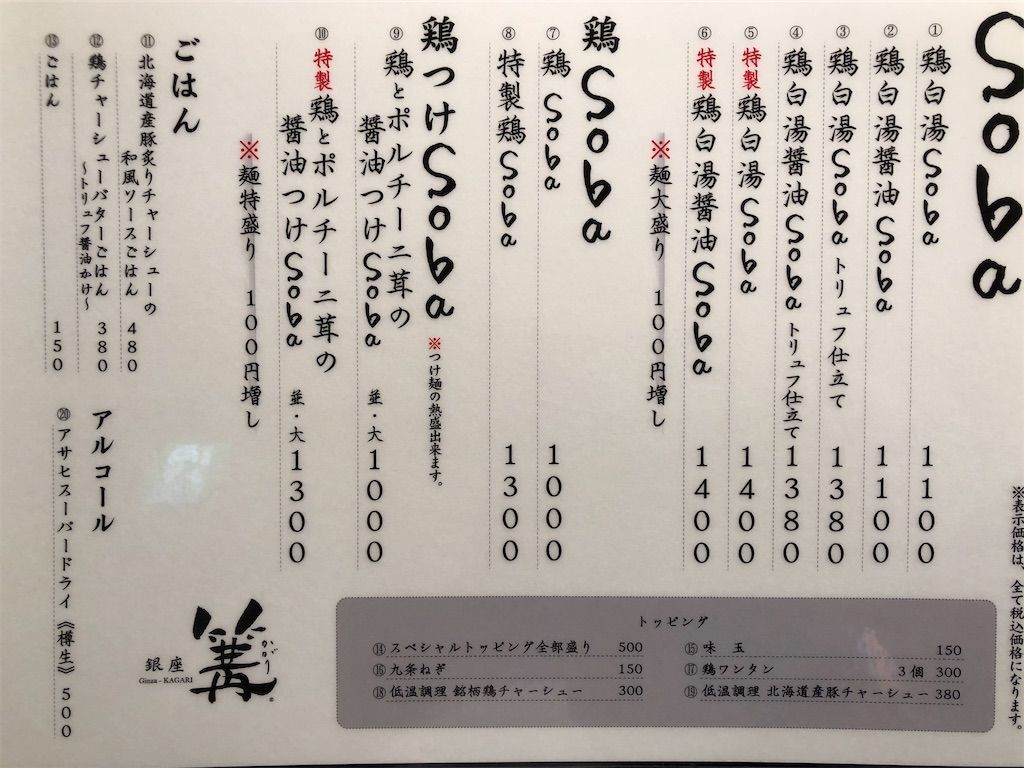 Soba
①鶏白湯Soba 1100
②鶏白湯醤油Soba 1100
③鶏白湯Sobaトリュフ仕立て 1380
④鶏白湯醤油Sobaトリュフ仕立て 1380
⑤特製鶏白湯Soba 1400
⑥特製鶏白湯醤油Soba 1400
※麺大盛り 100円増し
鶏Soba
⑦鶏Soba 1000
⑧特製鶏Soba 1300
鶏つけSoba ※つけ麺の熱盛出来ます。
⑨鶏とポルチーニ茸の
醤油つけSoba 並・大1000
⑩特製鶏とポルチーニ茸の
醤油つけSoba 並・大1300
※麺特盛り 100円増し
ごはん
⑪北海道産豚炙りチャーシューの
和風ソースごはん 480
⑫鶏チャーシューバターごはん 380
〜トリュフ醤油かけ〜
⑬ごはん 150
アルコール
⑳アサヒスーパードライ《樽生》 500
※表示価格は、全て税込価格になります。
トッピング
⑭スペシャルトッピング全部盛り 500
⑮味 玉 150
⑯九条ねぎ 150
⑰鶏ワンタン 3個 300
⑱低温調理 銘柄鶏チャーシュー 300
⑲低温調理 北海道産豚チャーシュー 380
銀座
Ginza - KAGARI
篝
かがり